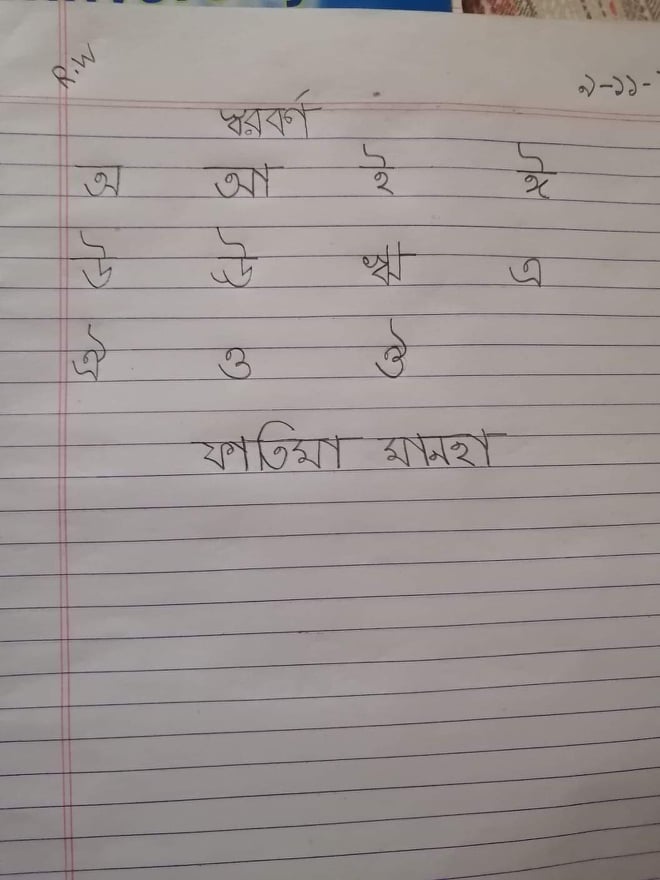 R.W
স্বরবর্ণ
অ আ ই ঈ
উ ঊ ঋ এ
ঐ ও ঔ
ফাতিমা মানহা